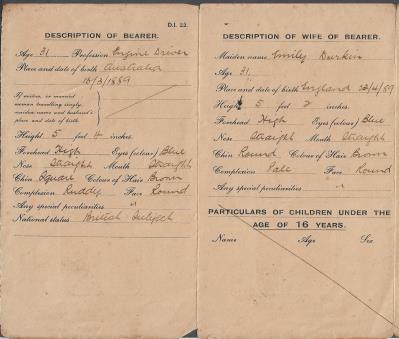 D.I. 22.
DESCRIPTION OF BEARER.
Age 31 Profession Engine Driver
Place and date of birth Australia
18/3/1889
If widow, or married
woman travelling singly,
maiden name and husband's
place and date of birth.
Height 5 feet 4 inches.
Forehead High Eyes (colour) Blue
Nose Straight Mouth Straight
Chin Square Colour of Hair Brown
Complexion Ruddy Face Round
Any special peculiarities "
National status British Subject
DESCRIPTION OF WIFE OF BEARER.
Maiden name Emily Durkin
Age 31
Place and date of birth England 23/4/89
Height 5 feet 2 inches.
Forehead High Eyes (colour) Blue
Nose Straight Mouth Straight
Chin Round Colour of Hair Brown
Complexion Pale Face Round
Any special peculiarities "
PARTICULARS OF CHILDREN UNDER THE
AGE OF 16 YEARS.
Name Age Sex